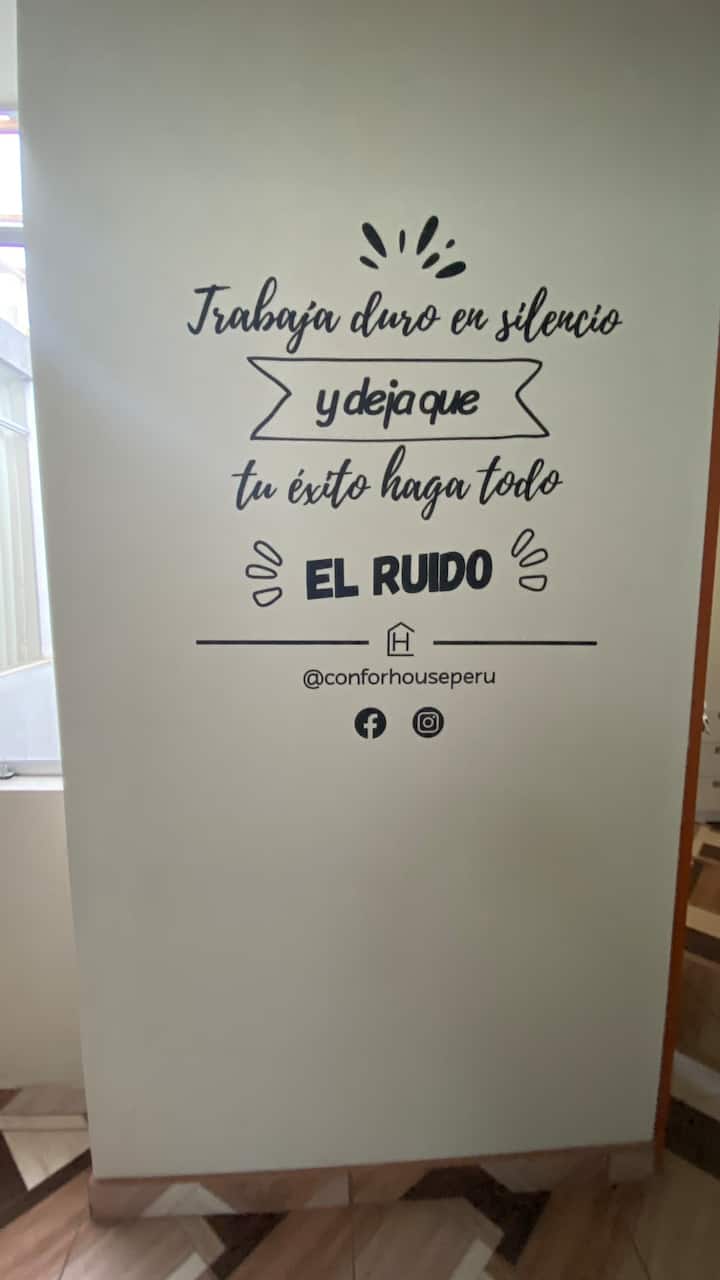 Trabaja duro en silencio
y deja que
tu éxito haga todo
EL RUIDO
H
@conforhouseperu